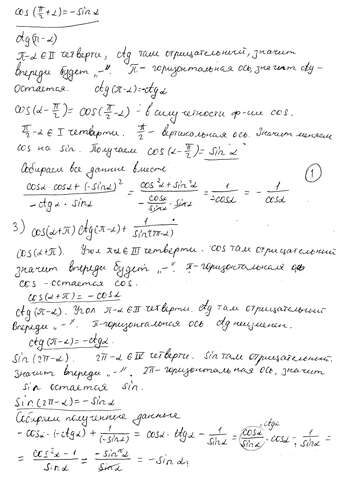 cos(π/2+α)=-sinα
ctg(π-α)
π-α ∈ II четверти, ctg там отрицательный, значит
впереди будет „-". π - горизонтальная ось, значит ctg -
остается. ctg(π-α)=-ctgα
cos(α-π/2)=cos(π/2-α) - в силу четности ф-ии cos.
π/2-α ∈ I четверти. π/2 - вертикальная ось. Значит меняем
cos на sin. Получаем cos(α-π/2)=sinα
Собираем все данные вместе
(cosα·cosα+(-sinα)²)/(-ctgα·sinα) = (cos²α+sin²α)/(-cosα/sinα·sinα) = 1/(-cosα) = -1/cosα
①
3) cos(α+π)ctg(π-α)+1/sin(2π-α)
cos(α+π). Угол π+α ∈ III четверти. cos там отрицательный
значит впереди будет „-". π-горизонтальная ось
cos - остается cos.
cos(α+π)=-cosα
ctg(π-α). Угол π-α ∈ II четверти. ctg там отрицательный.
впереди „-". π-горизонтальная ось ctg
ctg(π-α)=-ctgα.
sin(2π-α). 2π-α ∈ IV четверти. sin там отрицательный.
Значит впереди „-". 2π-горизонтальная ось, значит
sin остается sin.
sin(2π-α)=-sinα
Собираем полученные данные
-cosα·(-ctgα)+1/(-sinα) = cosα·ctgα-1/sinα = cosα/sinα·cosα-1/sinα =
ctgα
= (cos²α-1)/sinα = -sin²α/sinα = -sinα